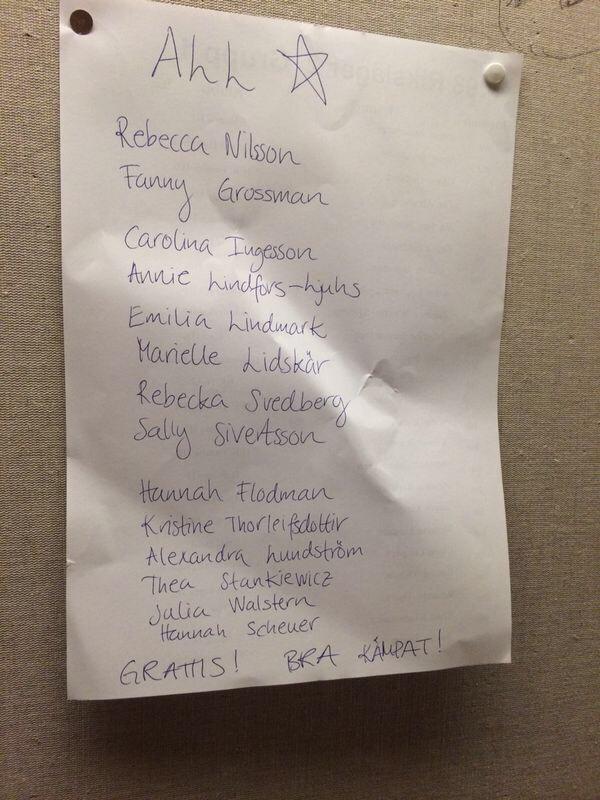 Ahh
Rebecca Nilsson
Fanny Grossman
Carolina Ingesson
Annie Lindfors-Ljuhs
Emilia Lindmark
Marielle Lidskär
Rebecka Svedberg
Sally Sivertsson
Hannah Flodman
Kristine Thorleifsdottir
Alexandra Lundström
Thea Stankiewicz
Julia Walstern
Hannah Scheuer
GRATTIS! BRA KÄMPAT!